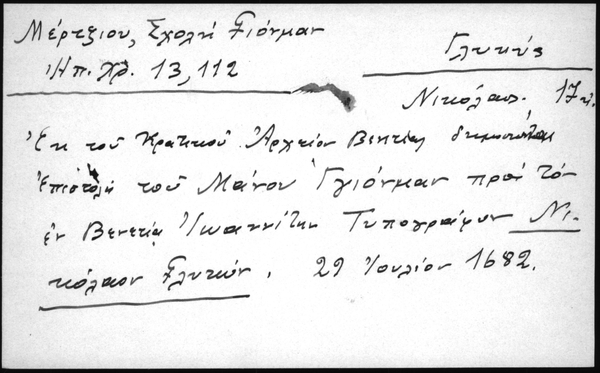 Μέρτζιου, Σχολή Γιόνμαν
Ἠπ. Χρ. 13, 112
Γλυκύς
Νικόλαος. 17 αἰ.
Ἐκ τοῦ Κρατικοῦ Ἀρχείου Βενετίας δημοσιεύεται
ἐπιστολή τοῦ Μάνου Γγιόνμαν πρός τόν
ἐν Βενετίᾳ Ἰωαννίτην Τυπογράφον Νι-
κόλαον Γλυκύν. 29 Ἰουλίου 1682.